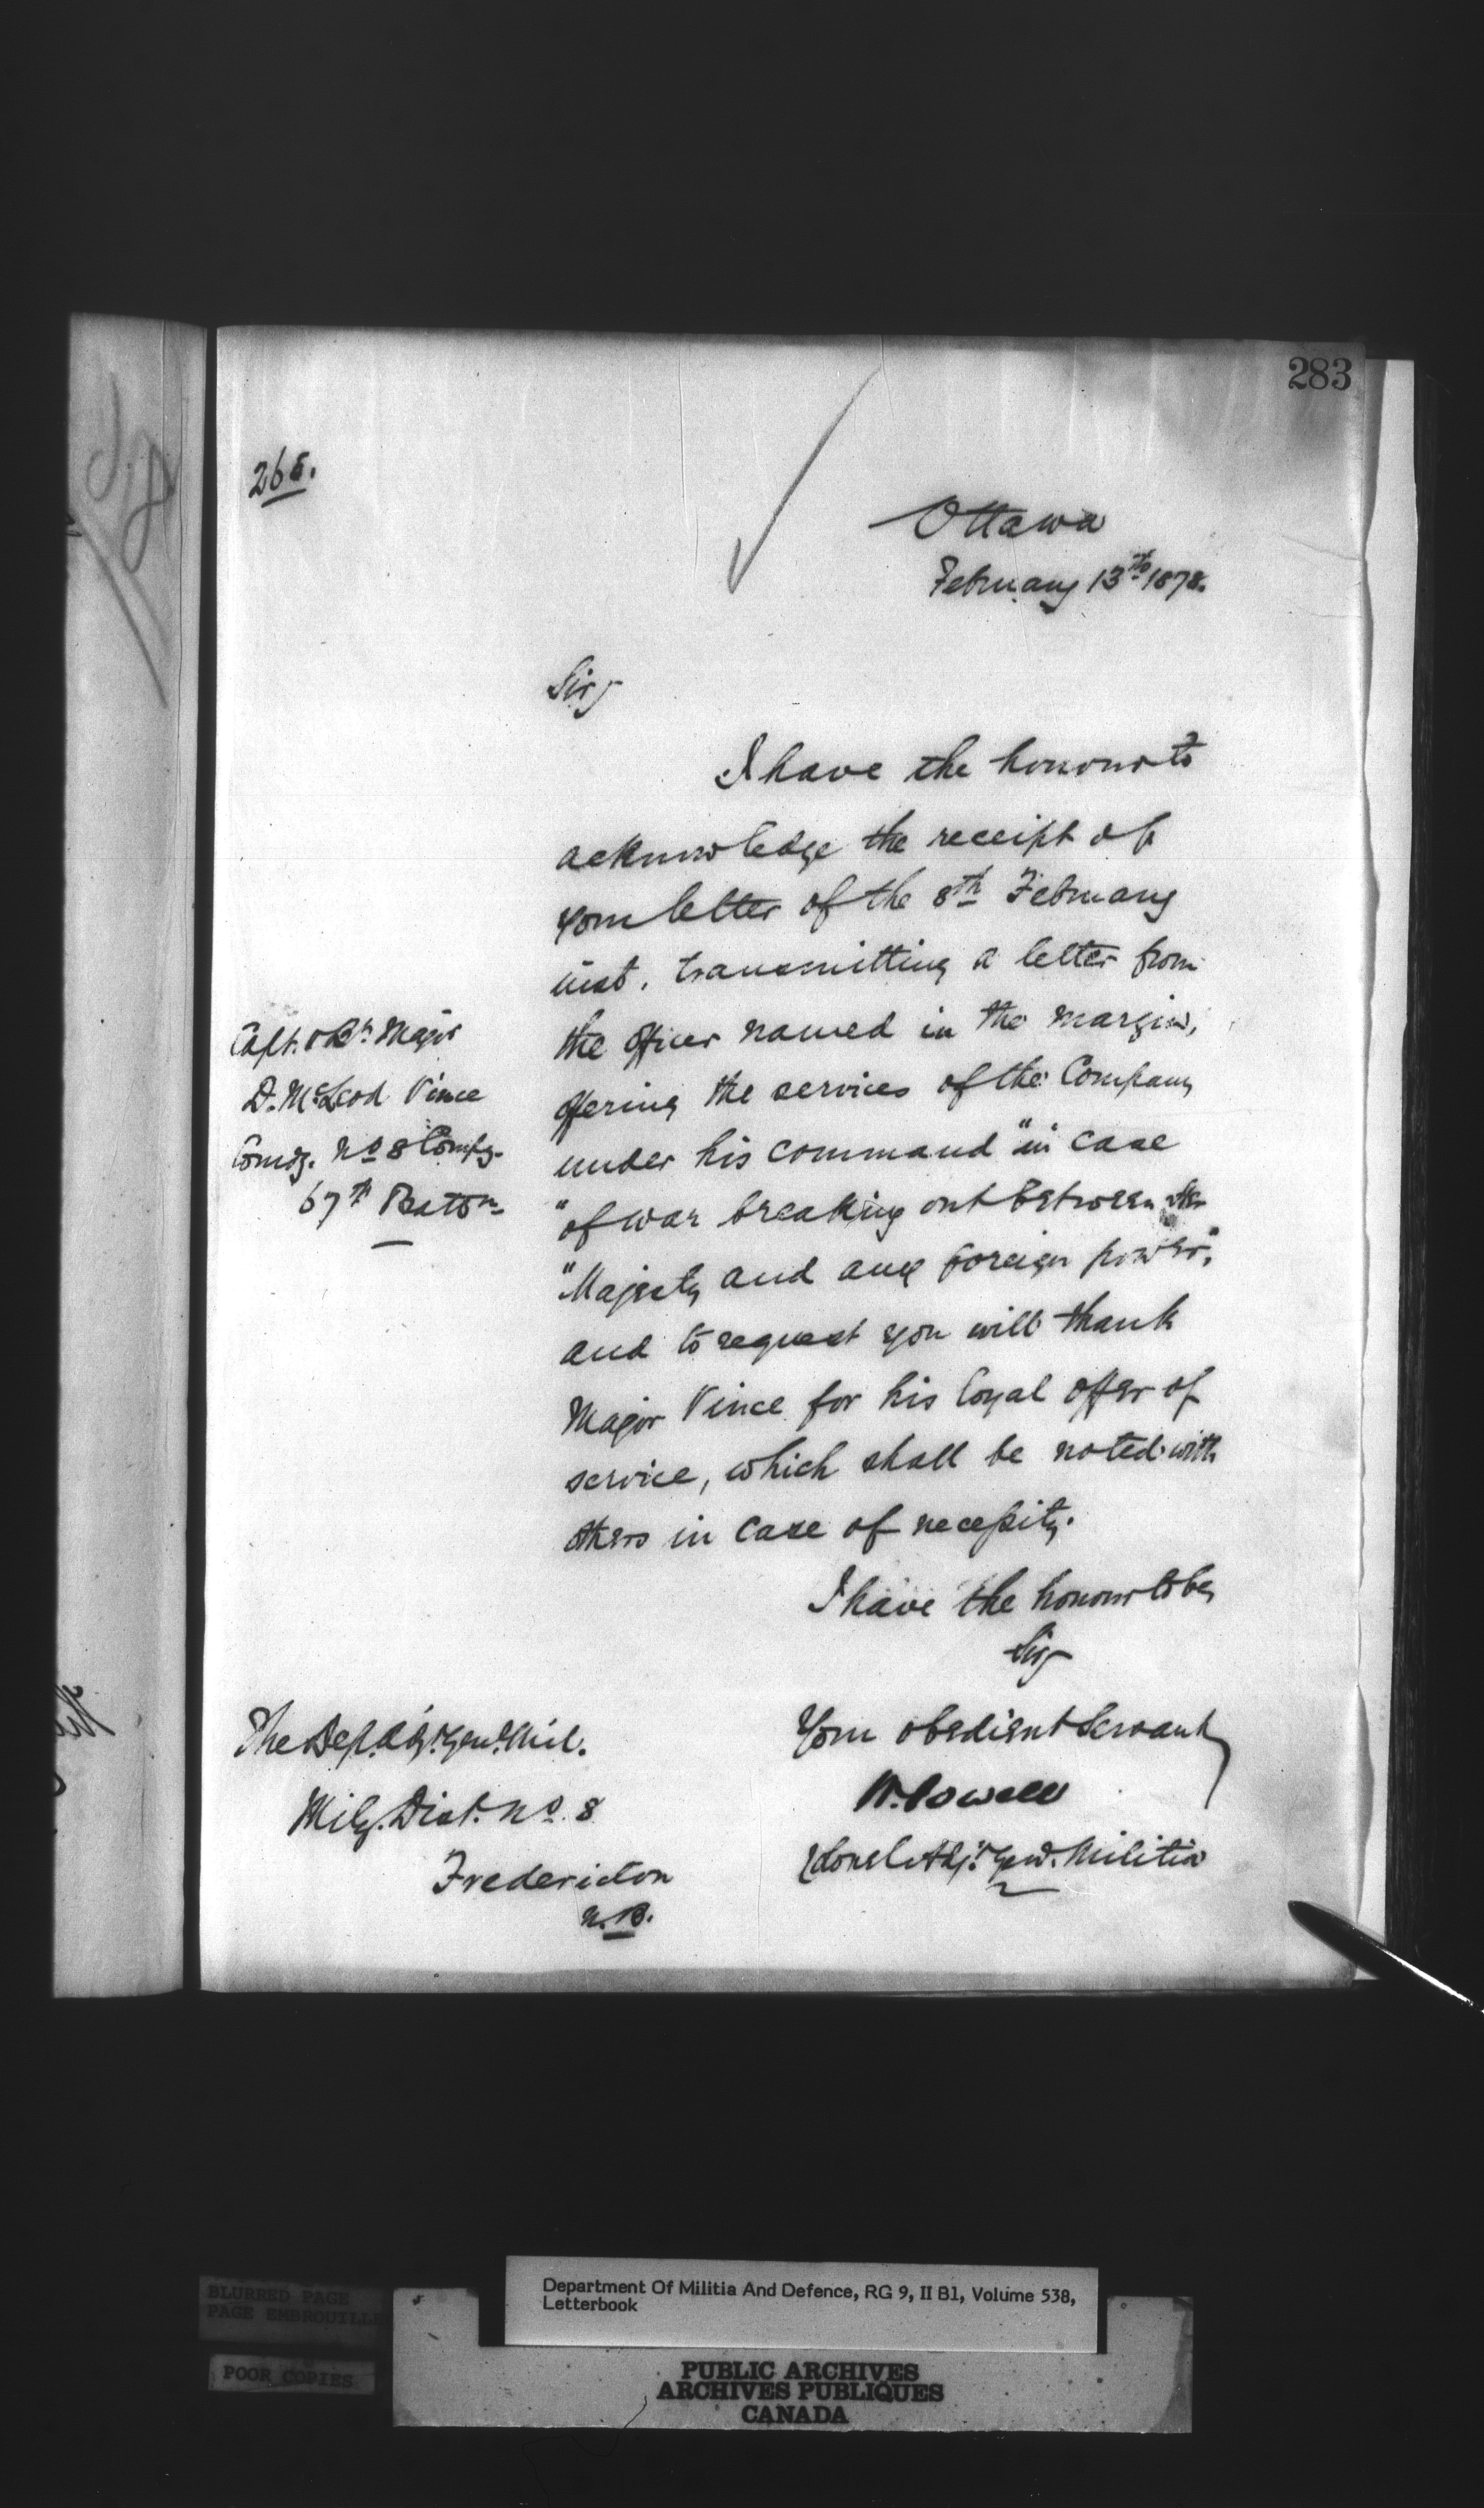 283
265.
Ottawa
February 13th 1878.
Sir,
I have the honour to
acknowledge the receipt of
your letter of the 8th February
inst. transmitting a letter from
the officer named in the margin,
offering the services of the Company
under his command "in case
"of war breaking out between Her
"Majesty and any foreign power",
and to request you will thank
Major Vince for his loyal offer of
service, which shall be noted with
others in case of necessity.
I have the honour to be,
Sir,
Your obedient Servant,
W. Powell
Colonel Adjt. Genl. Militia
Capt. & Bt. Major
D. McLeod Vince
Comdg. No 8 Compy.
67th Battn.
The Dep. Adjt. Genl. Mil.
Mily. Dist. No. 8
Fredericton
N.B.
Department Of Militia And Defence, RG 9, II B1, Volume 538,
Letterbook
BLURRED PAGE
PAGE EMBROUILLE
POOR COPIES
PUBLIC ARCHIVES
ARCHIVES PUBLIQUES
CANADA